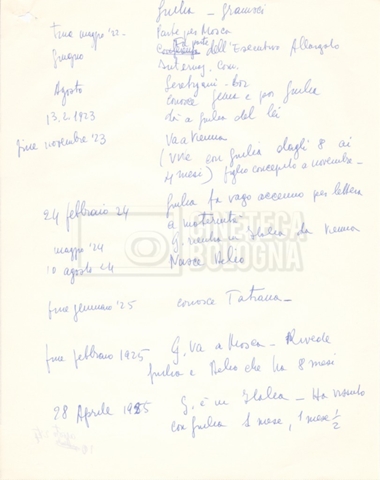 Giulia – Gramsci
fine maggio '22 – Parte per Mosca
Giugno fa parte dell'Esecutivo Allargato
Internaz. Com.
Agosto Serebrjani-bor
conosce Genia e poi Giulia
13.2.1923 dà a Giulia del lei
fine novembre '23 Va a Vienna
(vive con Giulia dagli 8 ai
4 mesi) figlio concepito a novembre –
24 febbraio 24 Giulia fa vago accenno per lettera
a maternità
maggio '24 G. rientra in Italia da Vienna
10 agosto 24 Nasce Delio
fine gennaio '25 conosce Tatiana –
fine febbraio 1925 G. va a Mosca – Rivede
Giulia e Delio che ha 8 mesi
28 Aprile 1925 G. è in Italia – Ha vissuto
con Giulia 1 mese, 1 mese ½
CINETECA
BOLOGNA